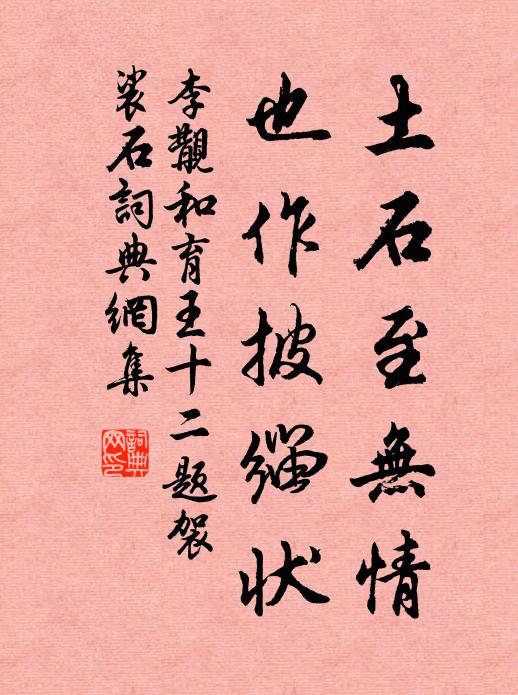 土石至無情
也作披緇状
李覯和育王十二题袈
裟石詞典網集
詞典网印